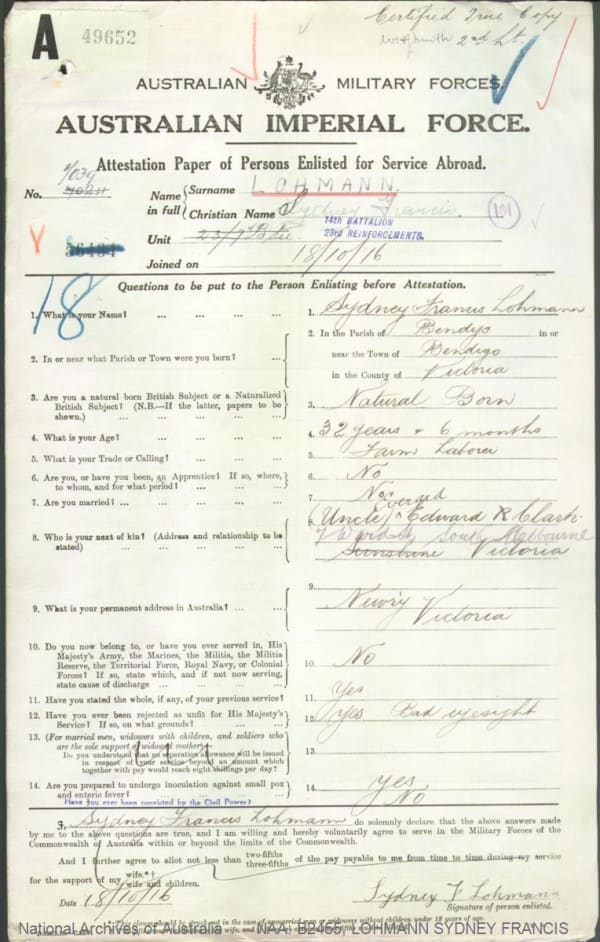 Certified True Copy
2nd Lt.
A
49652
AUSTRALIAN MILITARY FORCES.
AUSTRALIAN IMPERIAL FORCE.
Attestation Paper of Persons Enlisted for Service Abroad.
7039
No. 7020
Name in full
Surname LOHMANN
Christian Name Sydney Francis
101
14TH BATTALION
23RD REINFORCEMENTS.
Unit
Joined on 18/10/16
18
Questions to be put to the Person Enlisting before Attestation.
1. What is your Name? ... ... ... ...
1. Sydney Francis Lohmann
2. In or near what Parish or Town were you born? ...
2. In the Parish of Bendigo in or
near the Town of Bendigo
in the County of Victoria
3. Are you a natural born British Subject or a Naturalized
British Subject? (N.B.—If the latter, papers to be
shewn.) ... ... ... ...
3. Natural Born
4. What is your Age? ... ... ... ...
4. 32 years + 6 months
5. What is your Trade or Calling? ... ... ...
5. Farm Laborer
6. Are you, or have you been, an Apprentice? If so, where,
to whom, and for what period? ... ... ...
6. No
7. Are you married? ... ... ... ...
7. No
8. Who is your next of kin? (Address and relationship to be
stated) ... ... ... ...
8. (Uncle) Edward R Clark
South Melbourne
Sunshine Victoria
9. What is your permanent address in Australia? ... ...
9. Newry
Victoria
10. Do you now belong to, or have you ever served in, His
Majesty's Army, the Marines, the Militia, the Militia
Reserve, the Territorial Force, Royal Navy, or Colonial
Forces? If so, state which, and if not now serving,
state cause of discharge ... ... ...
10. No
11. Have you stated the whole, if any, of your previous service?
11. Yes
12. Have you ever been rejected as unfit for His Majesty's
Service? If so, on what grounds? ... ...
12. Yes Bad eyesight
13. (For married men, widowers with children, and soldiers who
are the sole support of widowed mother)—
Do you understand that no separation allowance will be issued
in respect of your service beyond an amount which
together with pay would reach eight shillings per day?
13.
14. Are you prepared to undergo inoculation against small pox
and enteric fever? ... ... ... ...
14. yes
Have you ever been convicted by the Civil Power?
No
I, Sydney Francis Lohmann do solemnly declare that the above answers made
by me to the above questions are true, and I am willing and hereby voluntarily agree to serve in the Military Forces of the
Commonwealth of Australia within or beyond the limits of the Commonwealth.
And I further agree to allot not less than two-fifths three-fifths of the pay payable to me from time to time during my service
for the support of my wife.*†
wife and children.
Date 18/10/16
Sydney F Lohmann
Signature of person enlisted.
National Archives of Australia NAA: B2455, LOHMANN SYDNEY FRANCIS